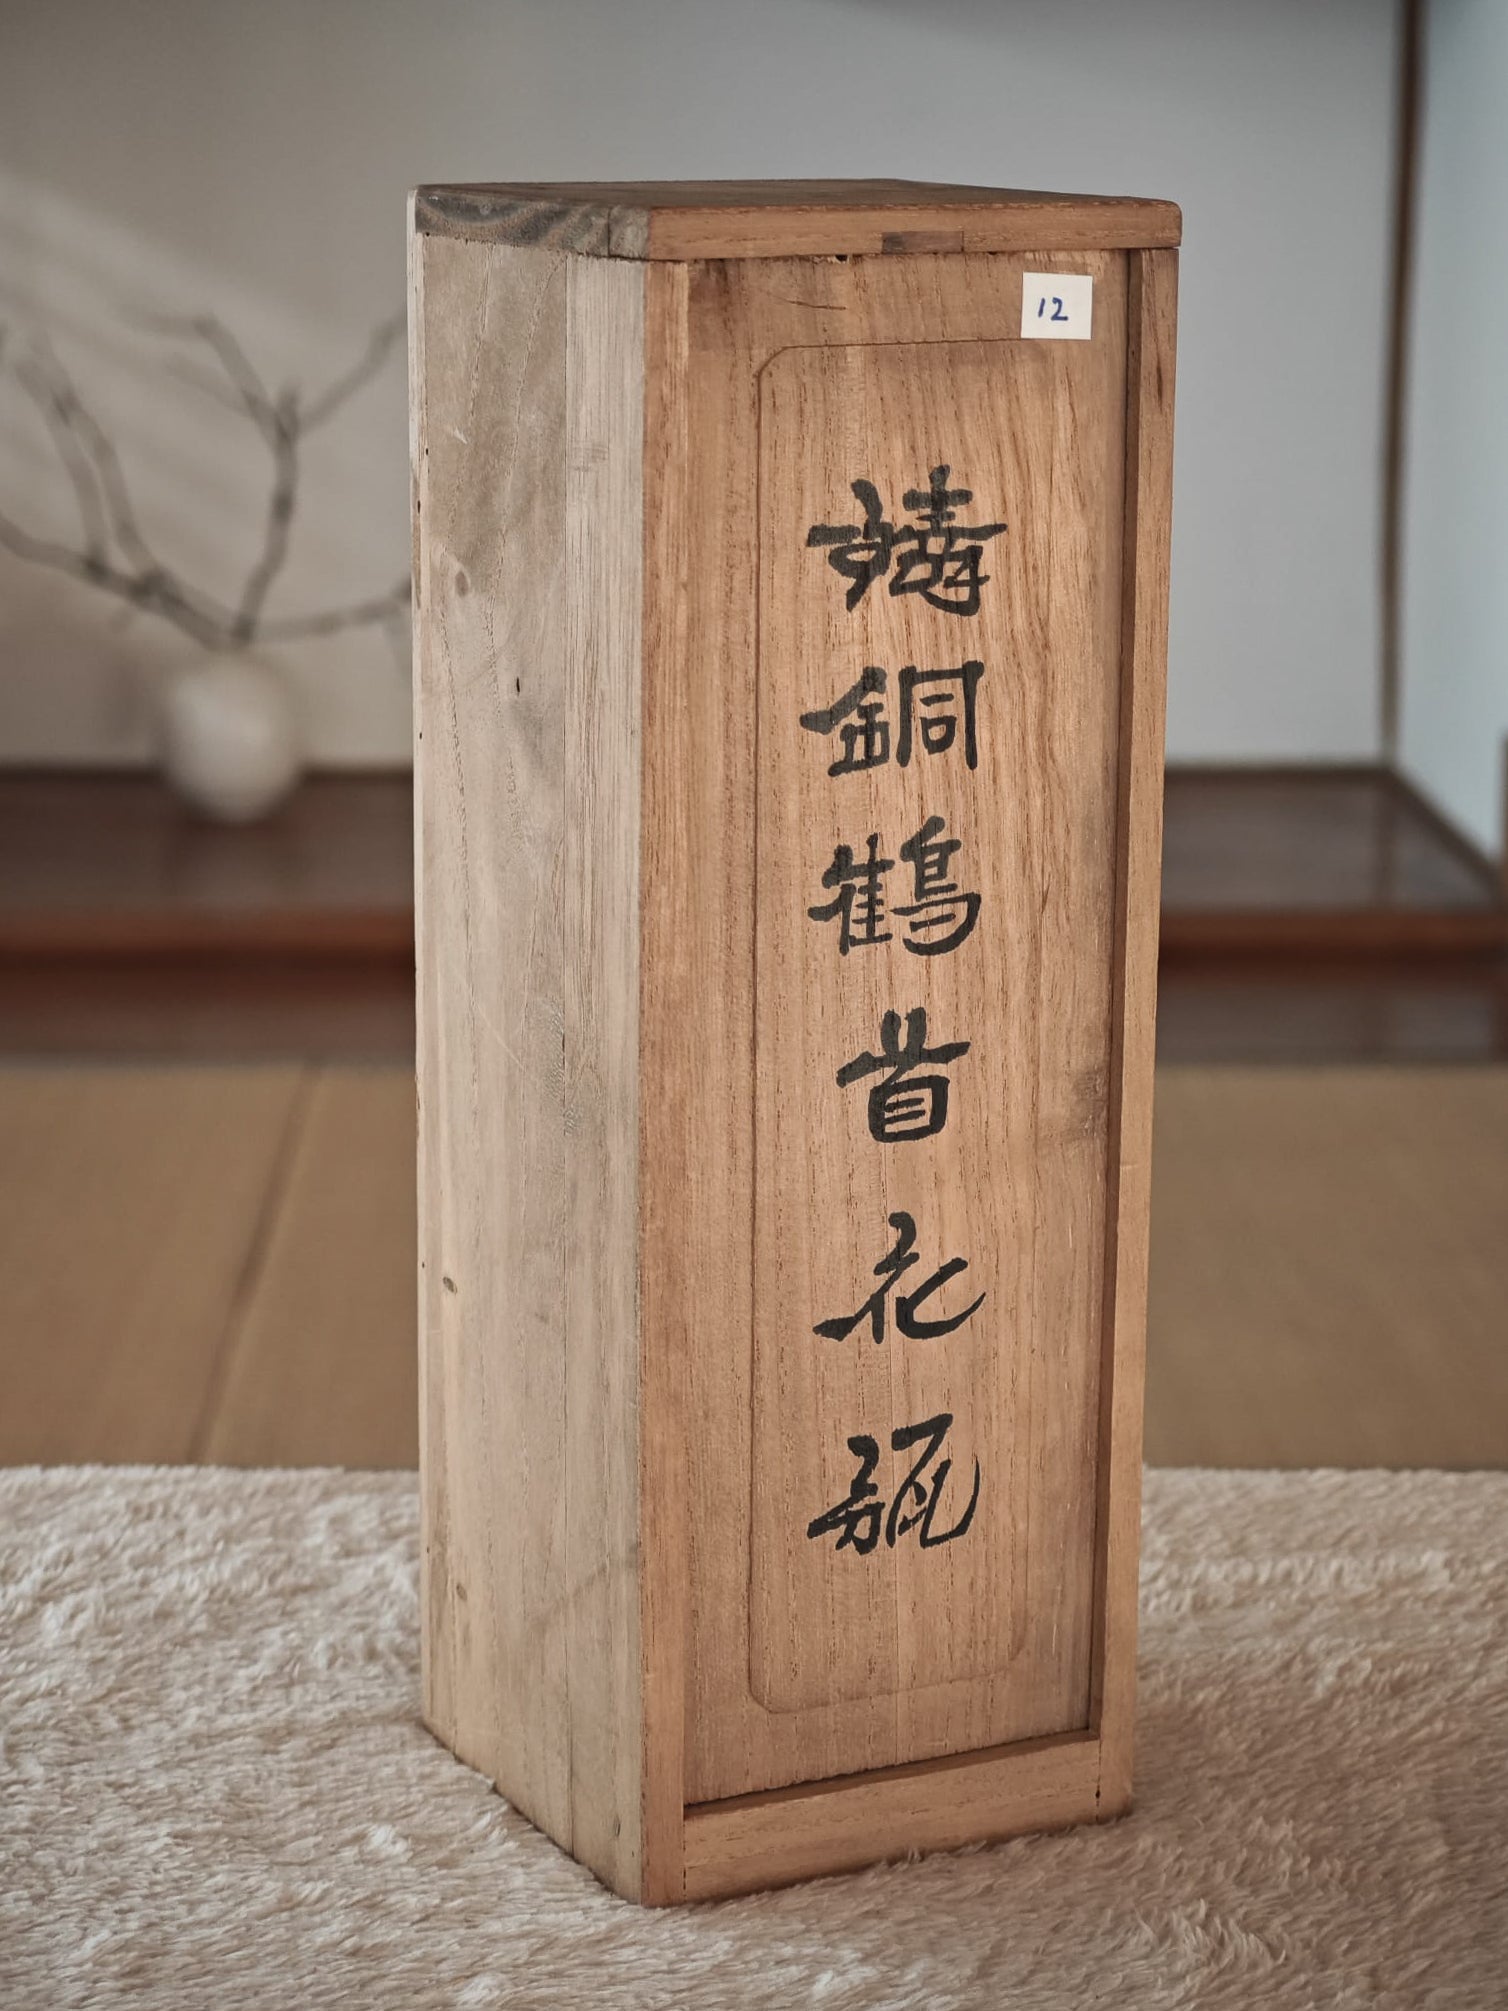 12
鋳銅鶴首花瓶